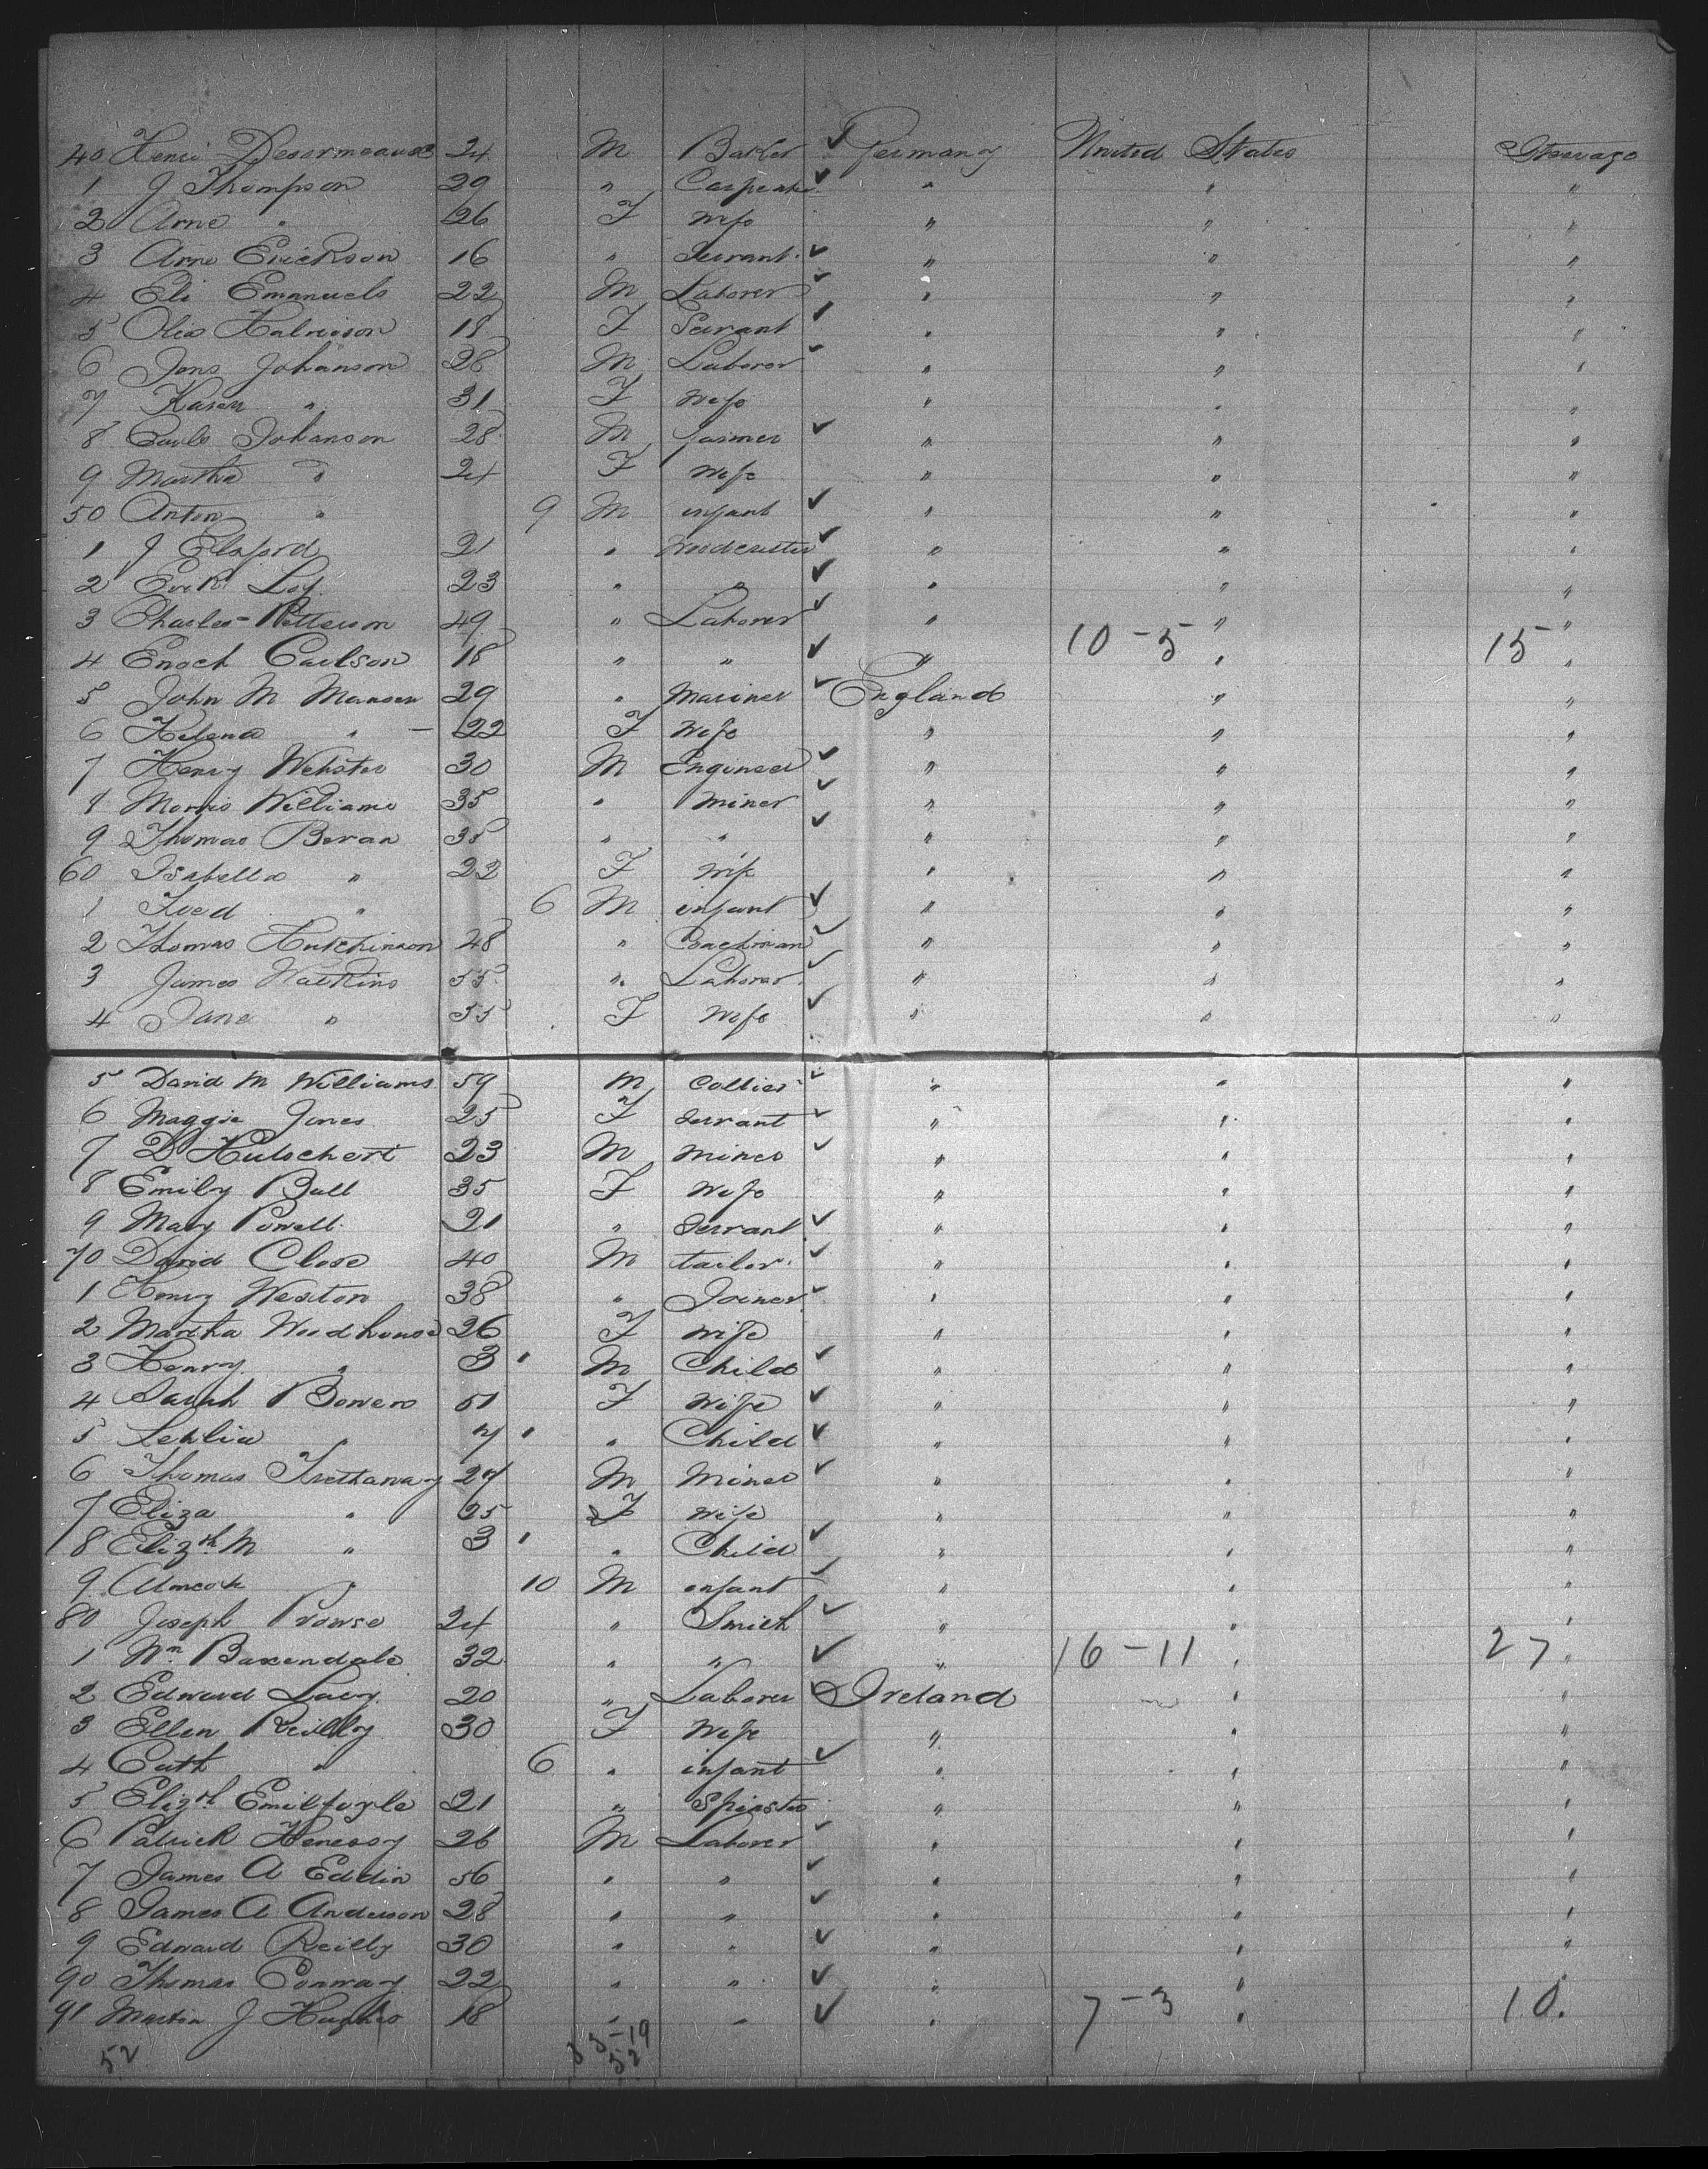 40 Henri Desormeaux 24 M Baker ✓ Germany United States Steerage
1 J Thompson 29 " Carpenter ✓ " " "
2 Arne " 26 F wife " " "
3 Arne Erickson 16 " Servant ✓ " " "
4 Eli Emanuels 22 M Laborer ✓ " " "
5 18 F Servant ✓ " " "
6 Jons Johanson 28 M Laborer ✓ " " "
7 Karen " 31 F wife " " "
8 Johanson 28 M farmer ✓ " " "
9 Martha " 24 F wife " " "
50 Anton " 9 M infant ✓ " " "
1 J 21 " Woodcutter ✓ " " "
2 Erik 23 " " ✓ " " "
3 Charles Petterson 49 " Laborer ✓ " " "
4 Enoch Carlson 18 " " ✓ " 10-5 " 15 "
5 John M Manson 29 " Mariner ✓ England " "
6 Helena " - 22 F wife " " "
7 Henry Webster 30 M Engineer ✓ " " "
8 Morris Williams 35 " miner ✓ " " "
9 Thomas Bevan 35 " " ✓ " " "
60 Isabella " 22 F wife " " "
1 Fred " 6 M infant ✓ " " "
2 Thomas Hutchinson 48 " Coachman ✓ " " "
3 James Watkins 55 " Laborer ✓ " " "
4 Jane " 55 F wife ✓ " " "
5 David M Williams 59 M Collier ✓ " " "
6 Maggie Jones 25 F Servant ✓ " " "
7 D 23 M miner ✓ " " "
8 Emily Bull 35 F wife " " "
9 Mary Powell 21 " Servant ✓ " " "
70 David Close 40 M tailor ✓ " " "
1 Henry Weston 38 " Joiner ✓ " " "
2 Martha Woodhouse 26 F wife " " "
3 Henry " 3 " M Child ✓ " " "
4 Sarah Bowers 51 F wife ✓ " " "
5 " 7 " " Child ✓ " " "
6 Thomas Trethaway 27 M Miner ✓ " " "
7 Eliza " 25 F wife " " "
8 Elizth M " 3 " " Child ✓ " " "
9 " 10 M infant ✓ " " "
80 Joseph Prowse 24 " Smith ✓ " " "
1 Wm Baxendale 32 " " ✓ " 16-11 " 27 "
2 Edward Lacy 20 " Laborer ✓ Ireland " "
3 Ellen Reilly 30 F wife " " "
4 Cath " 6 " infant ✓ " " "
5 Elizth 21 " Spinster " " "
6 Patrick Henessy 26 M Laborer ✓ " " "
7 James A Eddin 56 " " ✓ " " "
8 James A Anderson 28 " " ✓ " " "
9 Edward Reilly 30 " " ✓ " " "
90 Thomas Conway 22 " " ✓ " " "
91 Martin J Hughes 18 " " ✓ " 7-3 " 10.
52 33-19
52